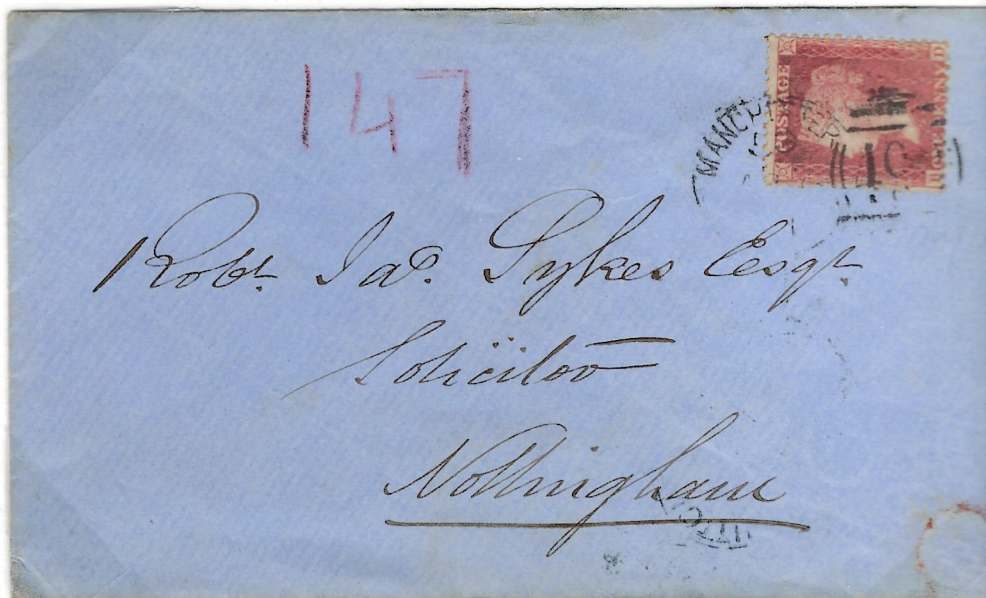 147
POSTAGE
MANCH
Robt. Jas. Sykes Esqr
Solicitor
Nottingham